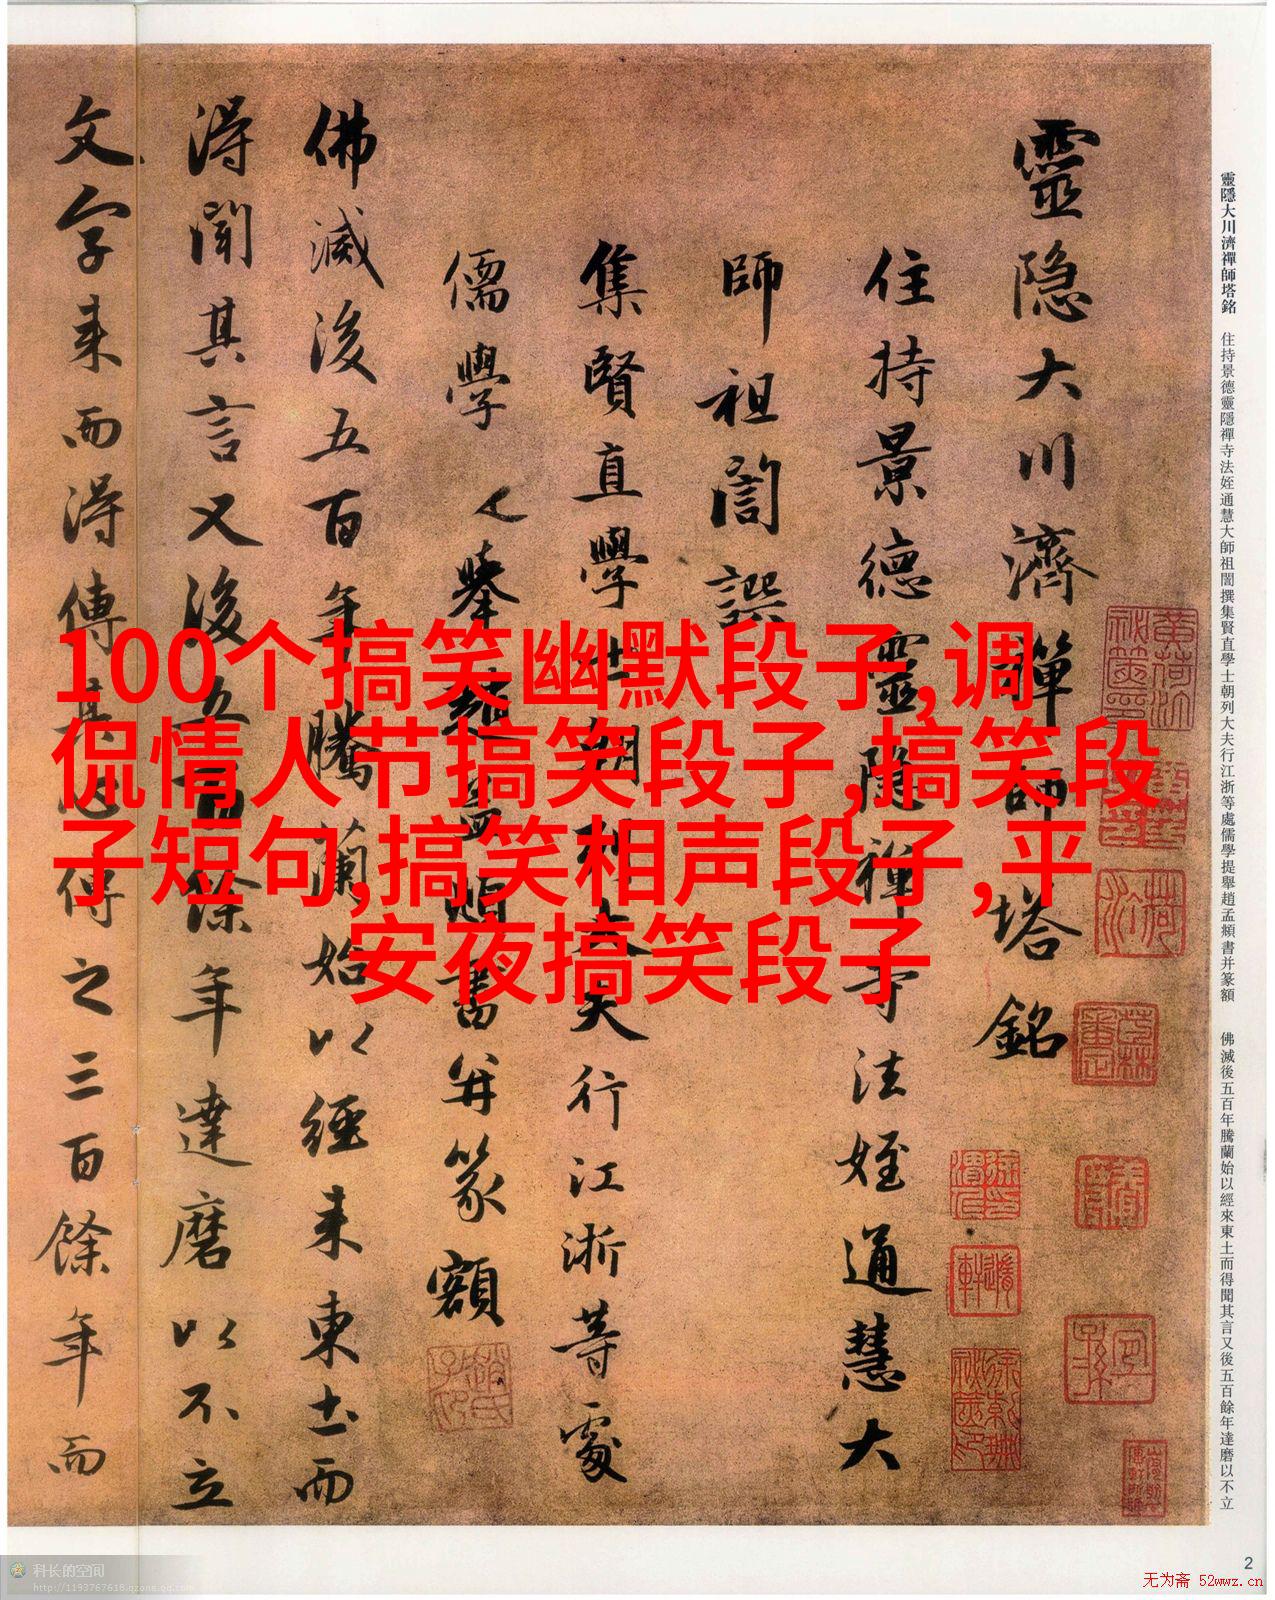 靈隱大川濟禪師塔銘 住持景德靈隱禪寺法姪通慧大師祖誾撰集賢直學士朝列大夫行江浙等處儒學提舉趙孟頫書并篆額 佛滅後五百年騰蘭始以經來東土而得聞其言又後五百餘年達磨以不立
靈隐大川濟禪師塔銘
住持景德靈隐禪寺法姪通慧大
師祖誾譔
集賢直學士朝列大夫行江浙等處
儒學舉趙孟頫書并篆額
佛滅後五百年騰蘭始以經来東土而
淂聞其言又後五百餘年達磨以不立
文字来而淂傳其心傳之三百餘年而
100个搞笑幽默段子,调
侃情人节搞笑段子,搞笑段
子短句,搞笑相声段子,平
安夜搞笑段子
2
科长的空间
http://1193767618.qzone.qq.com
无为斋 52wwz.cn